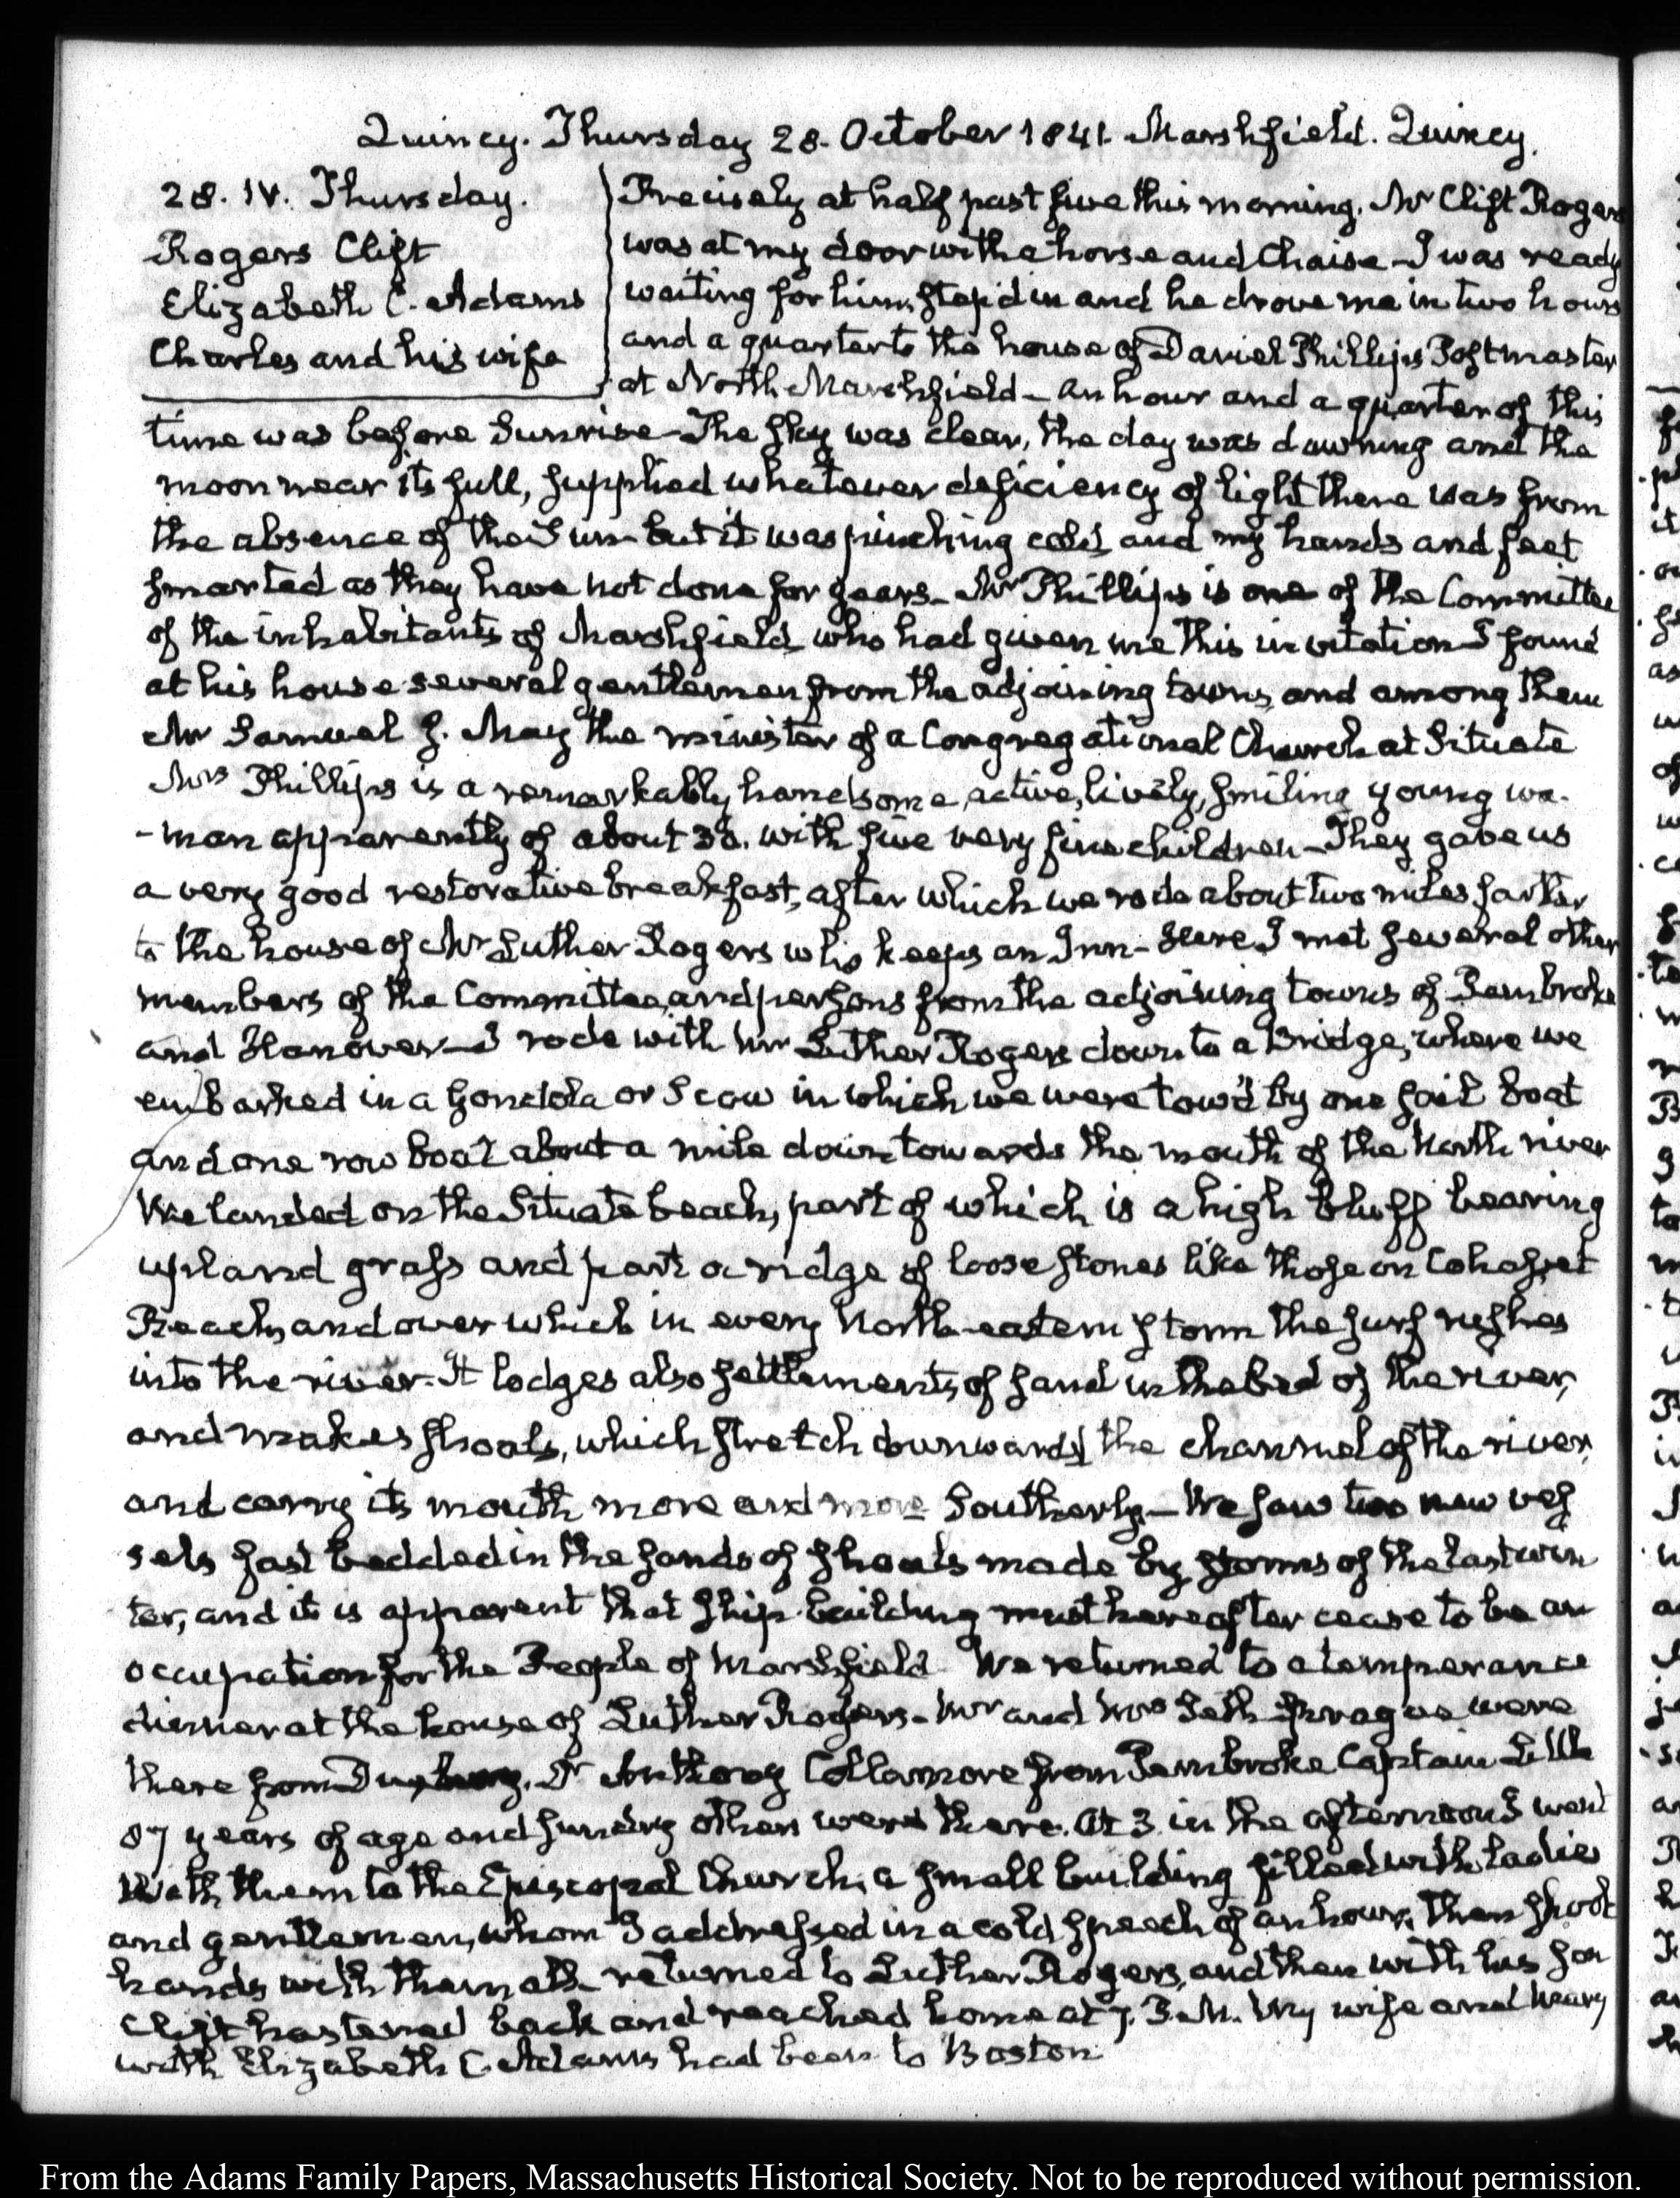 Quincy. Thursday 28. October 1841. Marshfield. Quincy.
28. IV. Thursday.
Rogers Clift
Elizabeth C. Adams
Charles and his wife
Precisely at half past five this morning. Mr Clift Rogers
was at my door with a horse and Chaise – I was ready
waiting for him, step'd in and he drove me in two hours
and a quarter to the house of Daniel Phillips Postmaster
at North Marshfield – an hour and a quarter of this
time was before Sunrise – The sky was clear, the day was dawning and the
moon near its full, supplied whatever deficiency of light there was from
the absence of the Sun – but it was pinching cold and my hands and feet
smarted as they have not done for years – Mr Phillips is one of the Committee
of the inhabitants of Marshfield who had given me this invitation I found
at his house several gentlemen from the adjoining towns, and among them
Mr Samuel J. May the minister of a Congregational Church at Situate
Mrs Phillips is a remarkably handsome, active, lively, smiling young wo-
-man apparently of about 30. with five very fine children – They gave us
a very good restorative breakfast, after which we rode about two miles farther
to the house of Mr Luther Rogers who keeps an Inn – Here I met several other
members of the Committee, and persons from the adjoining towns of Pembroke
and Hanover – I rode with Mr Luther Rogers down to a Bridge, where we
embarked in a gondola or Scow in which we were tow'd by one sail boat
and one row boat about a mile down towards the mouth of the North river
We landed on the Situate beach, part of which is a high bluff bearing
upland grass and part a ridge of loose stones like those on Cohasset
Beach, and over which in every North-eastern storm the surf rushes
into the river. It lodges also settlements of sand in the bed of the river,
and makes shoals, which stretch downwards the channel of the river,
and carry its mouth more and more Southerly. – We saw two new ves
sels fast bedded in the sands of shoals made by storms of the last win
ter, and it is apparent that ship-building must hereafter cease to be an
occupation for the People of Marshfield We returned to a temperance
dinner at the house of Luther Rogers – Mr and Mrs Seth Sprague were
there from Duxbury. Dr Anthony Collamore from Pembroke Captain Little
87 years of age and sundry others were there. At 3. in the afternoon I went
with them to the Episcopal Church, a small building filled with ladies
and gentlemen, whom I addressed in a cold speech of an hour. Then shook
hands with them all returned to Luther Rogers, and then with his son
Clift hastened back and reached home at 7. P.M. My wife and Mary
with Elizabeth C. Adams had been to Boston
From the Adams Family Papers, Massachusetts Historical Society. Not to be reproduced without permission.